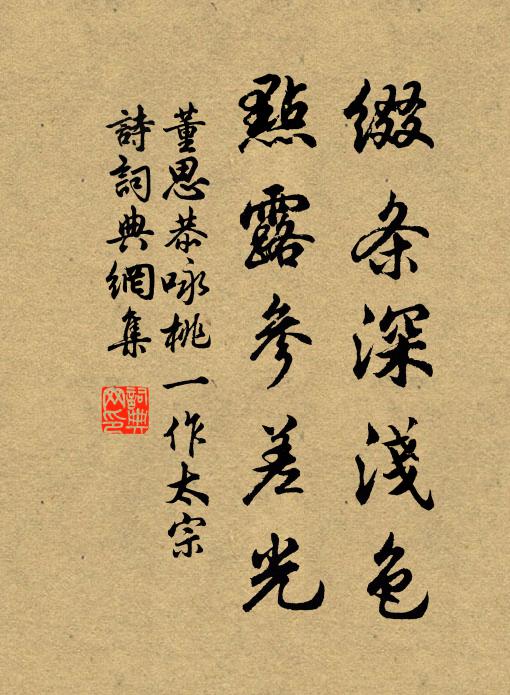 缀条深淺色
點露參差光
董思恭咏桃一作太宗
詩詞典網集
詞典网印